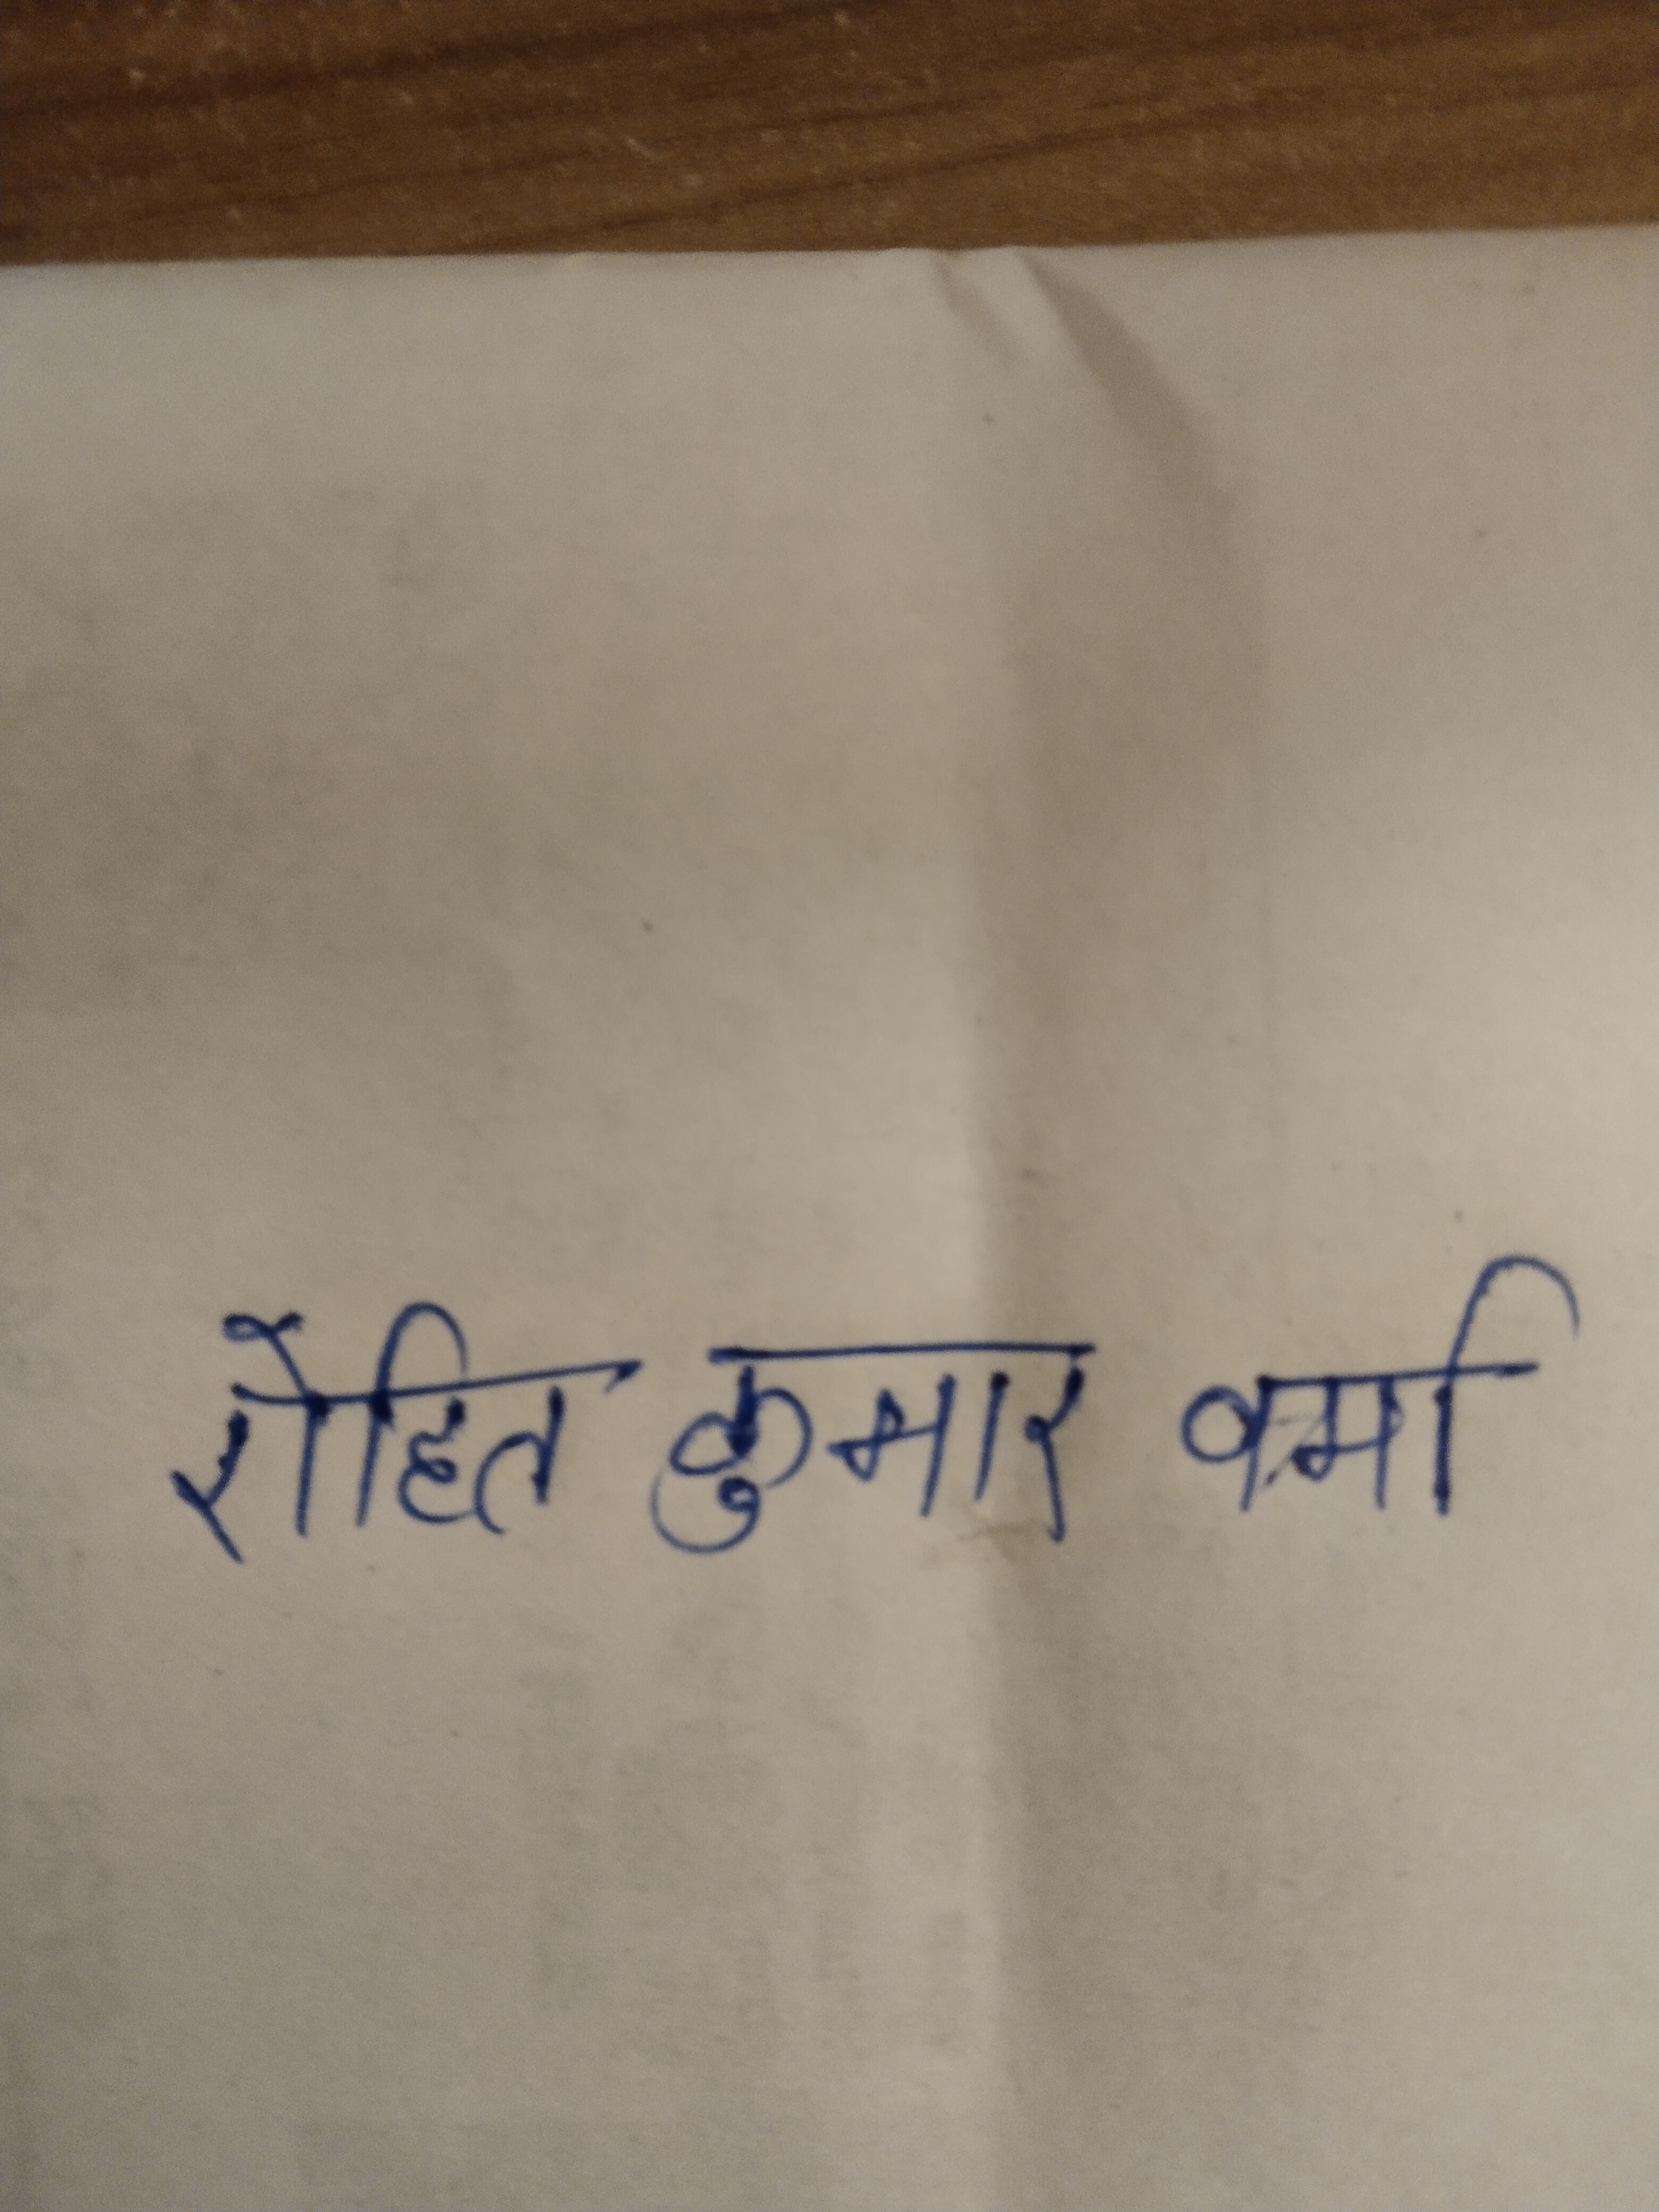 रोहित कुमार वर्मा